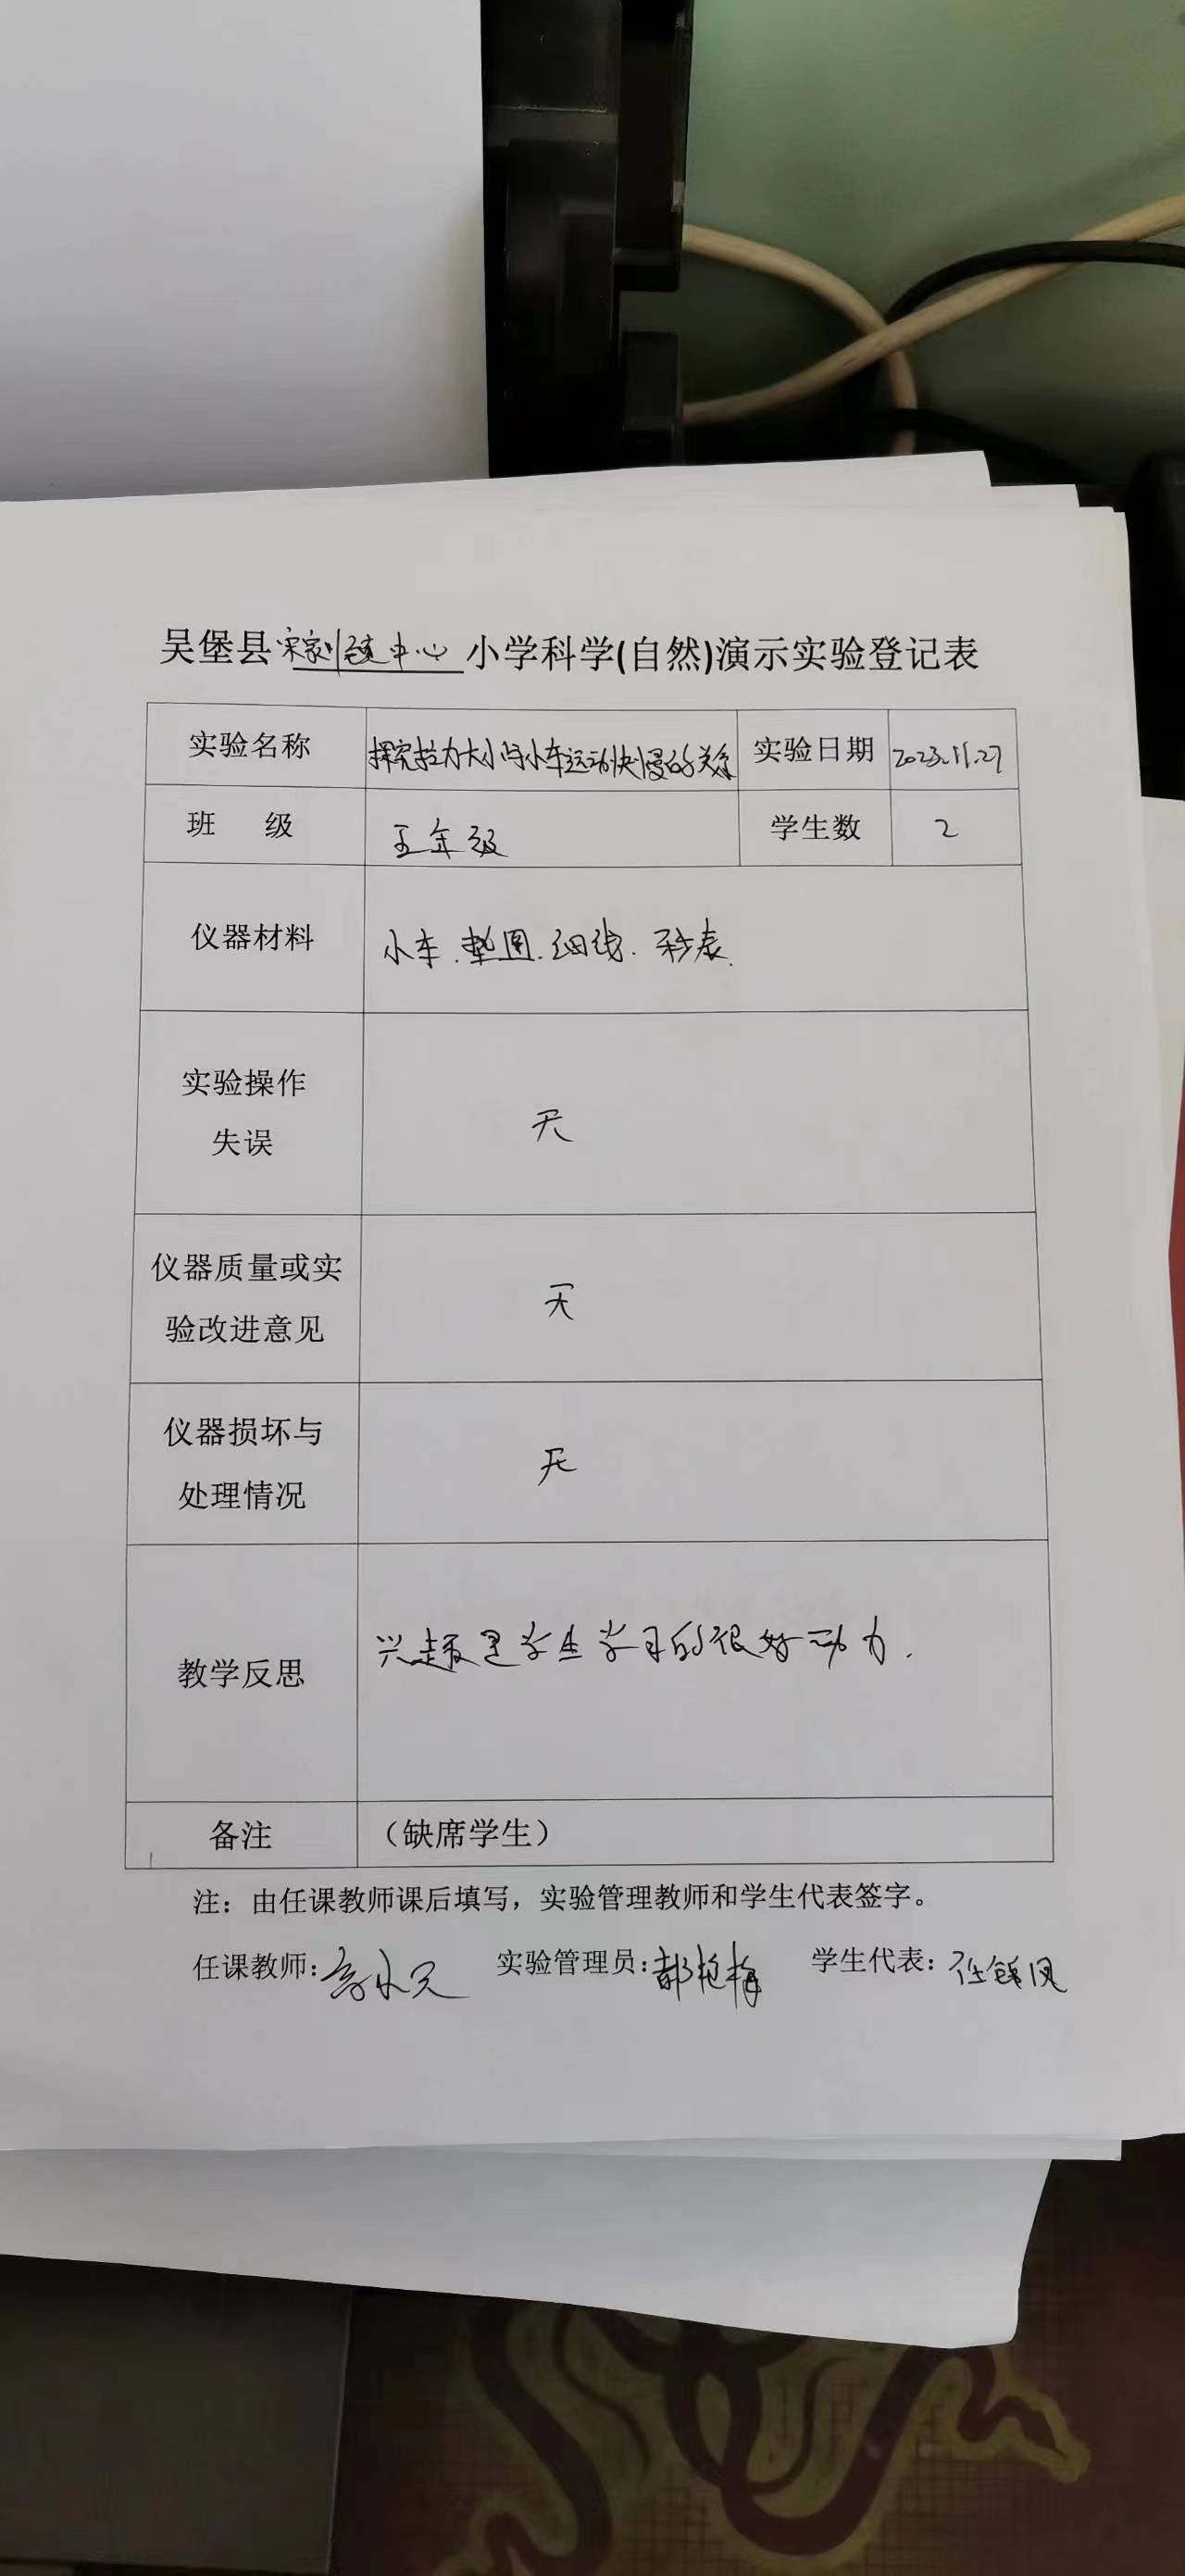 吴堡县宋家川镇中心小学科学(自然)演示实验登记表
实验名称 探究拉力大小与小车运动快慢的关系 实验日期 2023.11.27
班 级 五年级 学生数 2
仪器材料 小车.垫圈.细线.秒表.
实验操作
失误 无
仪器质量或实
验改进意见 无
仪器损坏与
处理情况 无
教学反思 兴趣是学生学习的很好动力.
备注 （缺席学生）
注：由任课教师课后填写，实验管理教师和学生代表签字。
任课教师: 实验管理员: 学生代表: